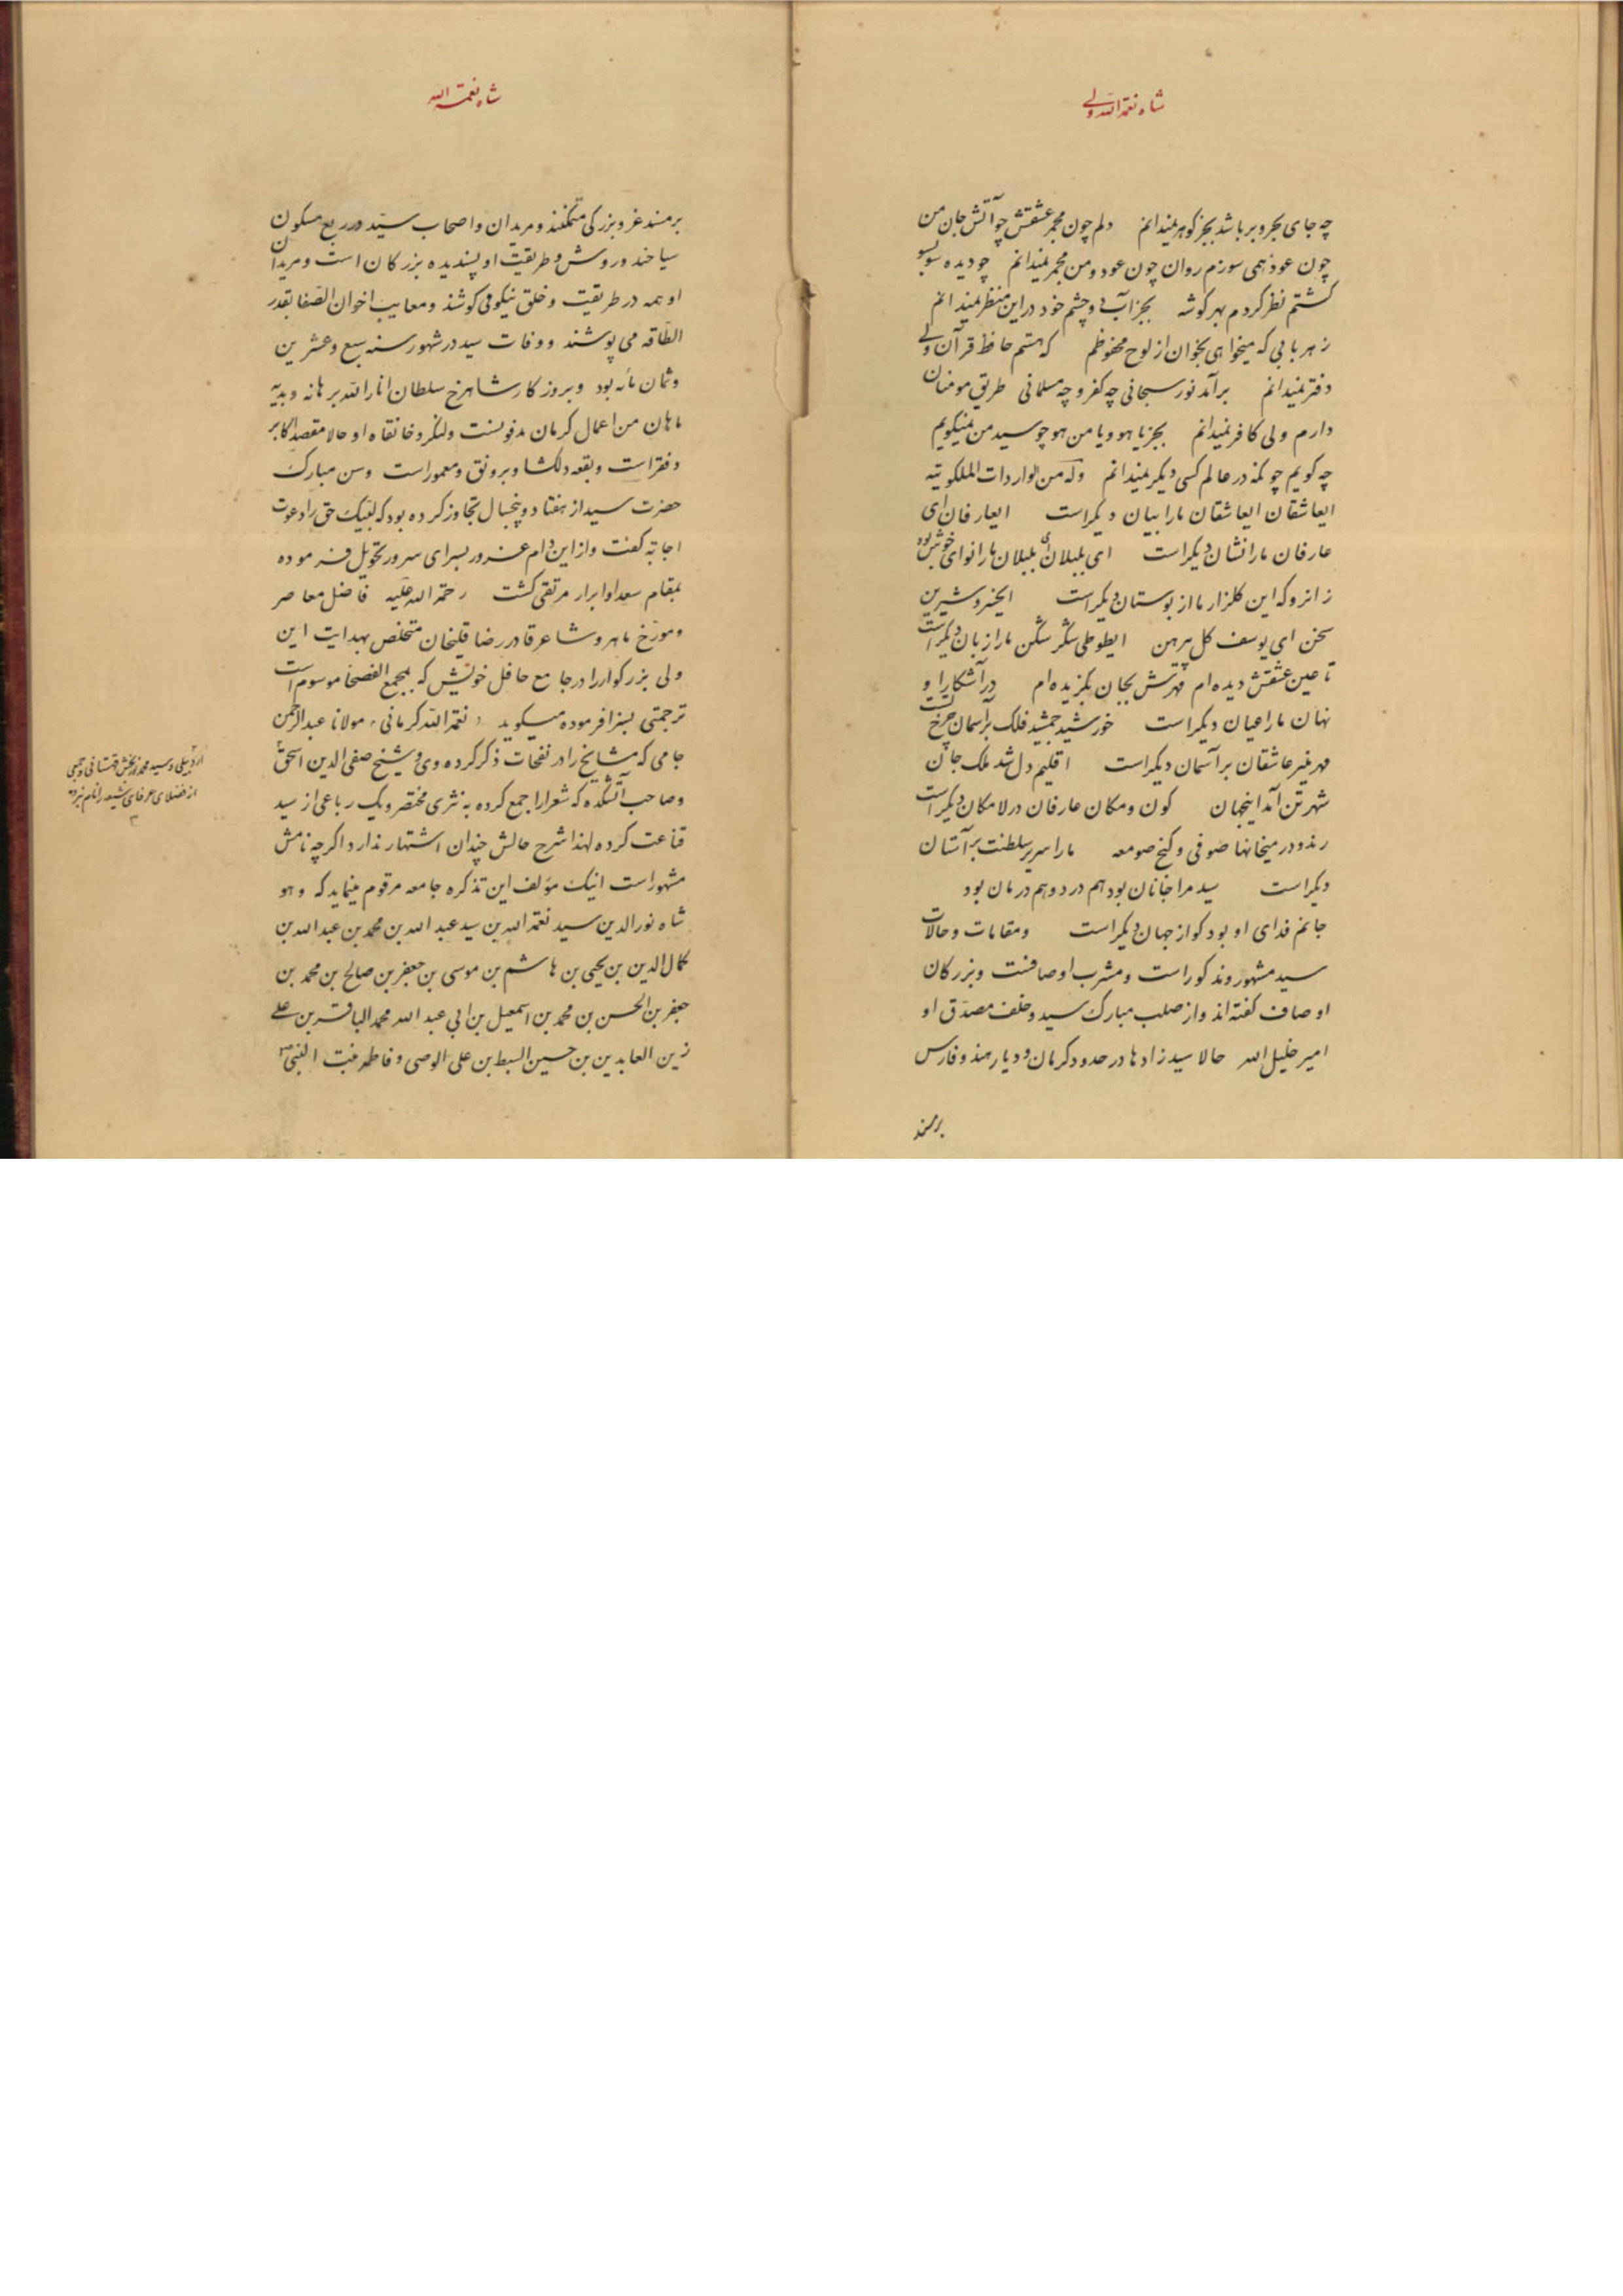 شاه نعمة الله ولی
چه جای بحر و بر باشد بجز کوهر نمیدانم دلم چون مجمر عشقش چو آتش جان من
چون عود همی سوزم روان چون عود و من مجمر نمیدانم چو دیده سو بسو
کشتم نظر کردم بهر کوشه بجز آب و چشم خود در این منظر نمیدانم
ز هر بابی که میخواهی بخوان از لوح محفوظم که هستم حافظ قرآن ولی
دفتر نمیدانم برآمد نور سبحانی چه کفر و چه مسلمانی طریق مومنان
دارم ولی کافر نمیدانم بجز یا هو و یا من هو چو سید من نمیکویم
چه کویم چونکه در عالم کسی دیکر نمیدانم وله من الواردات الملکوتیه
ایعاشقان ایعاشقان ما را بیان دیکر است ایعارفان ای
عارفان ما را نشان دیکر است ای بلبلان ای بلبلان ما را نوای خوش بود
زانرو که این کلزار ما از بوستان دیکر است ایخسرو شیرین
سخن ای یوسف کل پیرهن ایطوطی شکر شکن ما را زبان دیکر است
تا عین عشقش دیده ام مهرش بجان بکزیده ام در آشکارا و
نهان ما را عیان دیکر است خورشید جمشید فلک بر آسمان چرخ
مهر منیر عاشقان بر آسمان دیکر است اقلیم دل شد ملک جان
شهر تن آمد اینجهان کون و مکان عارفان در لا مکان دیکر است
رند و در میخانها صوفی و کنج صومعه ما را سریر سلطنت بر آستان
دیکر است سید مرا جانان بود هم درد و هم درمان بود
جانم فدای او بود کو از جهان دیکر است و مقامات و حالات
سید مشهور و مذکور است و مشرب او صافست و بزرکان
اوصاف کفته اند و از صلب مبارک سید و خلف مصدّق او
امیر خلیل الله حالا سید زادها در حدود کرمان و دیار هند و فارس
بر مسند
شاه نعمة الله
بر مسند عز و بزرکی متمکنند و مریدان و اصحاب سیّد در ربع مسکون
سیاحند و روش و طریقت او پسندیده بزرکان است و مریدان
او همه در طریقت و خلق نیکو می کوشند و معایب اخوان الصّفا بقدر
الطّاقه می پوشند و وفات سید در شهور سنه سبع و عشرین
و ثمان مائه بود و بروزکار شاهرخ سلطان انار الله برهانه و بدیه
ماهان من اعمال کرمان مدفونست و لنکر و خانقاه او حالا مقصد اکابر
و فقراست و بقعه دلکشا و بر رونق و معمور است و سن مبارک
حضرت سید از هفتاد و پنجسال تجاوز کرده بود که لبّیک حق را دعوت
اجابة کفت و از این دام غرور بسرای سرور تحویل فرموده
بمقام سعدا و ابرار مرتقی کشت رحمة الله علیه فاضل معاصر
و مورّخ ماهر و شاعر قادر رضا قلیخان متخلص بهدایت این
ولی بزرکوار را در جامع حافل خویش که بمجمع الفصحا موسوم است
ترجمتی بسزا فرموده میکوید نعمة الله کرمانی مولانا عبد الرحمن
جامی که مشایخ را در نفحات ذکر کرده وی و شیخ صفی الدین اسحق
و صاحب آتشکده که شعرا را جمع کرده به نثری مختصر و یک رباعی از سید
قناعت کرده لهذا شرح حالش چندان اشتهار ندارد اکرچه نامش
مشهور است اینک مؤلف این تذکره جامعه مرقوم مینماید که و هو
شاه نور الدین سید نعمة الله بن سید عبد الله بن محمد بن عبد الله بن
کمال الدین بن یحیی بن هاشم بن موسی بن جعفر بن صالح بن محمد بن
جعفر بن الحسن بن محمد بن اسمعیل بن ابی عبد الله محمد الباقر بن علی
زین العابدین بن حسین السبط بن علی الوصی و فاطمه بنت النبی ص
اردبیلی و سید محمد نوربخش قهستانی و جمعی
از فضلای عرفای شیعه را نام نبرده